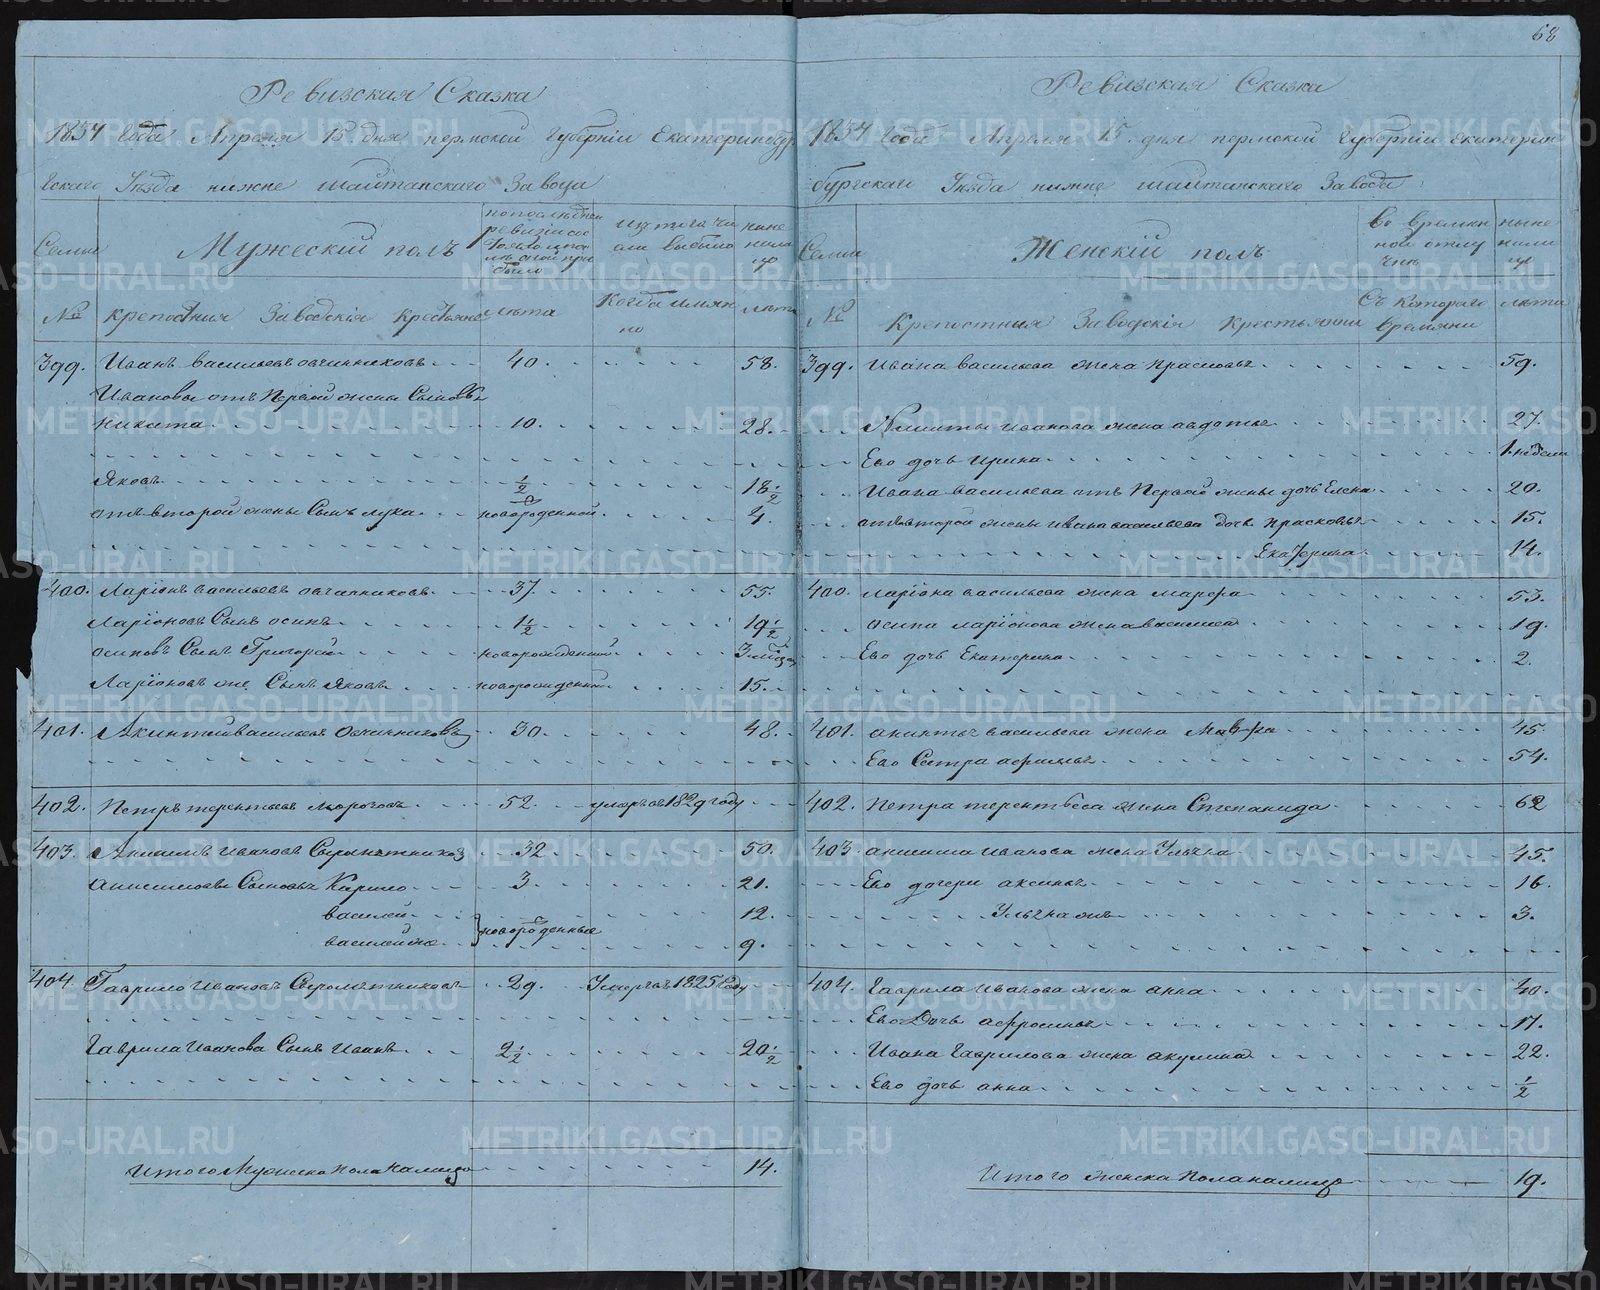 68
Ревизская Сказка
1834 Года Апреля 15 дня пермской Губерніи Екатеринбур
гскаго Уѣзда нижне шайтанскаго Завода
Семьи
Мужескій полъ
изтого чи
сла выбыло
ныне
на ли
цо
№
крепостныя Заводскія Крестьяне
лѣта
Когда имян
но
лѣта
399. Иванъ васильевъ овчинниковъ 40. 58.
Ивановы отъ Первой жены Сыновья
никита 10. 28.
Яковъ 1/2 18 1/2
отъ второй жены Сынъ лука новороденной 4.
400. Ларіонъ васильевъ овчинниковъ 37 55
Ларіоновъ Сынъ осипъ 1 1/2 19 1/2
осиповъ Сынъ Григорей новорожденный 3 мѣсяц
Ларіоновъ же Сынъ Яковъ новорожденной 15.
401. Акинтей васильевъ Овчинниковъ 30. 48.
402. Петръ терентьевъ Морозовъ 52. умеръ въ 1829 году
403. Анисимъ ивановъ Сыромятников 32 50.
анисимовы Сыновья Кирило 3. 21.
василей 12.
василей же новороденные 9.
404. Гаврило Ивановъ Сыромятниковъ 29. Умеръ въ 1825 Году
Гаврила Иванова Сынъ Иванъ 2 1/2 20 1/2
Итого Мужеска пола налицо 14.
Ревизская Сказка
1834 Года Апреля 15 дня пермской Губерніи Екатерин
бургскаго Уѣзда нижне шайтанскаго Завода
Семьи
Женскій полъ
во времян
ной отлу
чке
ныне
на ли
цо
№
Крепостныя Заводскія Крестьянки
Съ котораго
времяни
лѣта
399. Ивана васильева жена Прасковья 59.
Никиты иванова жена авдотья 27.
Ево дочь Ирина 1. недели
Ивана васильева отъ Первой жены дочь Елена 20.
отъ второй жены ивана васильева дочь прасковья 15.
Екатерина 14.
400. Ларіона васильева жена марфа 53.
осипа ларіонова жена василиса 19.
Ево дочь Екатерина 2.
401. акинтья васильева жена Мавра 45.
Ево Сестра афимья 54.
402. Петра терентьева жена Степанида 62
403. анисима иванова жена Ульяна 45.
Ево дочери аксинья 16.
Ульяна же 3.
404. Гаврила иванова жена анна 40.
Ево Дочь афросинья 17.
Ивана Гаврилова жена акулина 22.
Ево дочь анна 1/2
Итого женска пола налицо 19.
METRIKI.GASO-URAL.RU